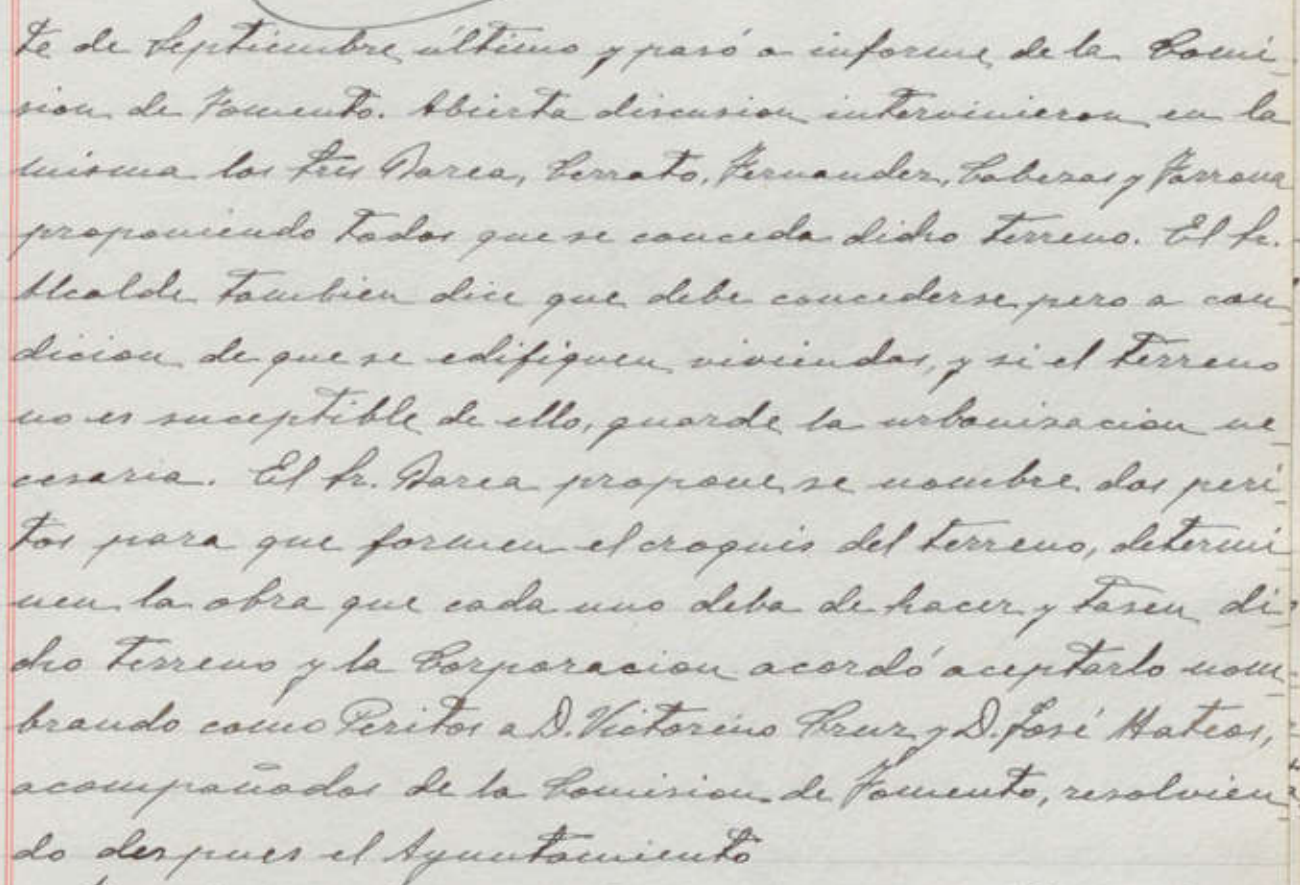 te de Septiembre último y pasó a informe de la Comi
sion de Fomento. Abierta discusion intervinieron en la
misma los Sres Barea, Cerrato, Fernandez, Cabezas y
proponiendo todos que se conceda dicho terreno. El Sr.
Alcalde tambien dice que debe concederse pero a con
dicion de que se edifiquen viviendas, y si el terreno
no es suceptible de ello, guarde la urbanisacion ne
cesaria. El Sr. Barea propone, se nombre dos peri
tos para que formen el croquis del terreno, determi
nen la obra que cada uno deba de hacer y tasen di
cho terreno y la Corporacion acordó aceptarlo nom
brando como Peritos a D. Victorino Cruz y D. José Mateos,
acompañados de la Comision de Fomento, resolvien
do despues el Ayuntamiento